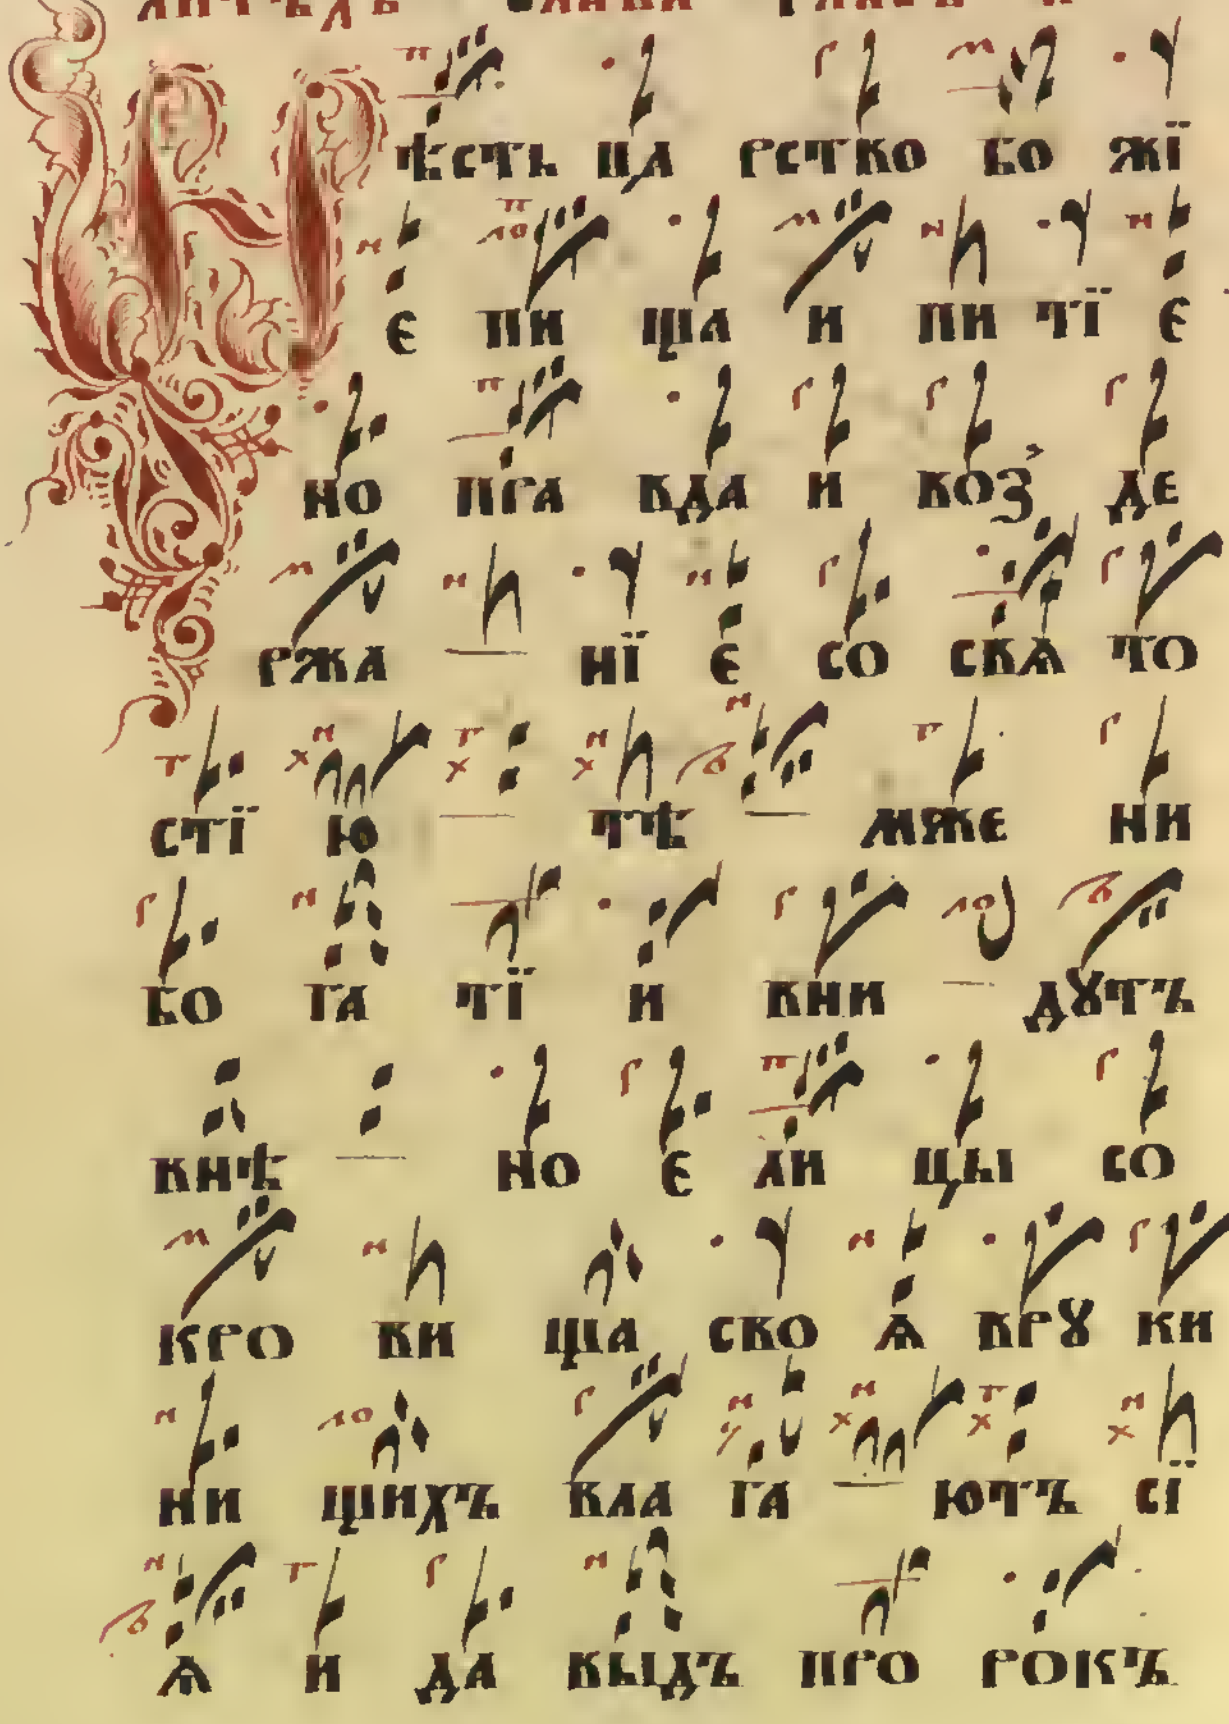 Нѣсть ца рство бо жї
е пи ща и пи тї е
но пра вда и воз де
ржа нї е со свѧ то
стї ю тѣ мже ни
бо га тї и вни дꙋтъ
внѣ но е ли цы со
кро ви ща сво ѧ врꙋ ки
ни щихъ вла га ютъ сї
ѧ и да выдъ про рокъ